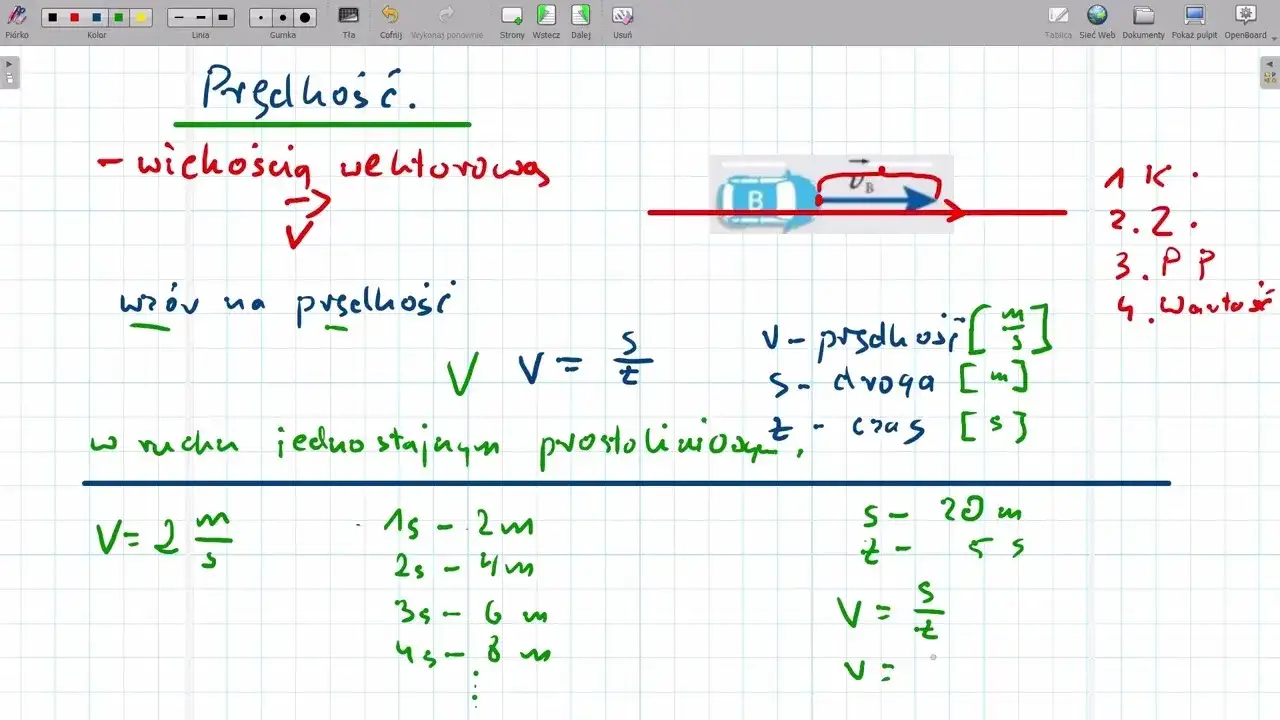 Piórko Kolor Linia Gumka Tła Cofnij Wykonaj ponownie Strony Wstecz Dalej Usuń Tablica Sieć Web Dokumenty Pokaż pulpit OpenBoard
Prędkość.
- wielkością wektorową
V
B
v B
1 K.
2. Z.
3. P P
4. Wartość
wzór na prędkość
V V = s/t
v - prędkość [m/s]
s - droga [m]
t - czas [s]
w ruchu jednostajnym prostoliniowym.
V = 2 m/s
1s - 2m
2s - 4m
3s - 6 m
4s - 8 m
s - 20 m
t - 5 s
V = s/t
V =